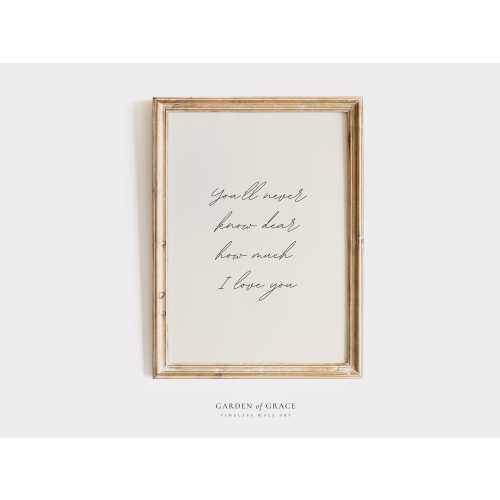 You'll never
know dear
how much
I love you
GARDEN of GRACE
TIMELESS WALL ART